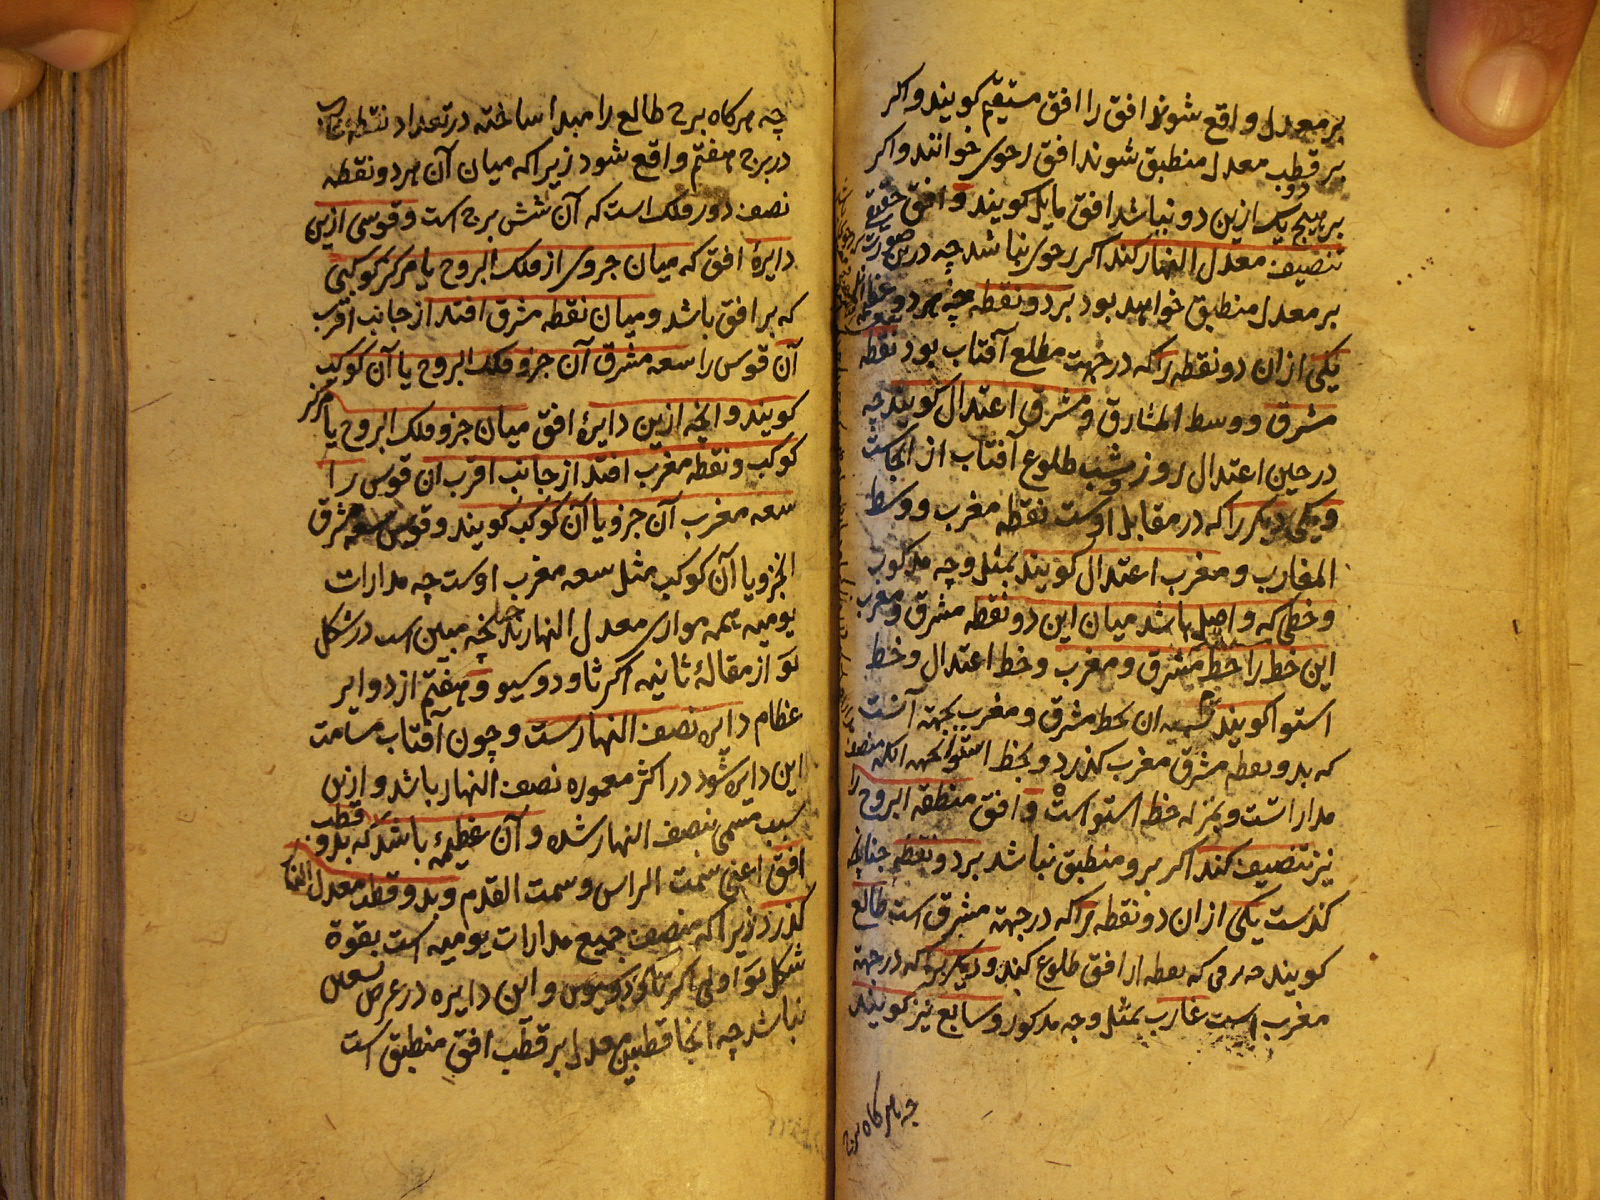 بر معدل واقع شوند افق را افق مستقیم کویند و اکر
بر قطب معدل منطبق شوند افق رحوی خوانند و اکر
بر هیچ یک ازین دو نباشد افق مایل کویند و افق حقیقی
تنصیف معدل النهار کند اکر رحوی نباشد چه درین صورت
بر معدل منطبق خواهد بود بر دو نقطه چه هر دو عظیمه
یکی ازان دو نقطه را که در جهت مطلع آفتاب بود نقطه
مشرق و وسط المشارق و مشرق اعتدال کویند چه
در حین اعتدال روز و شب طلوع آفتاب از انجاست
و یکی دیکر را که در مقابل اوست نقطه مغرب و وسط
المغارب و مغرب اعتدال کویند بمثل وجه مذکور
و خطی که واصل باشد میان این دو نقطه مشرق و مغرب
این خط را خط مشرق و مغرب و خط اعتدال و خط
استوا کویند تسمیه ان بخط مشرق و مغرب بجهة آنست
که بدو نقطه مشرق مغرب کذرد و بخط استوا بجهه انکه منصف
مداراتست و بمنزله خط استواست و افق منطقه البروج را
نیز تنصیف کند اکر برو منطبق نباشد بر دو نقطه چنانچه
کذشت یکی ازان دو نقطه را که در جهة مشرق است طالع
کویند چه برمی که نقطه از افق طلوع کند و دیکر را که در جهة
مغرب است غارب بمثل وجه مذکور و سابع نیز کویند
چه هرکاه برج
چه هرکاه برج طالع را مبدا ساخته در تعداد نقطه غارب
در برج هفتم واقع شود زیرا که میان آن هر دو نقطه
نصف دور فلک است که آن شش برج است و قوسی ازین
دایرهٔ افق که میان جزوی از فلک البروج یا مرکز کوکبی
که بر افق باشد و میان نقطه مشرق افتد از جانب اقرب
آن قوس را سعه مشرق آن جزو فلک البروج یا آن کوکب
کویند و انچه ازین دایرهٔ افق میان جزو فلک البروج یا مرکز
کوکب و نقطه مغرب افتد از جانب اقرب ان قوس را
سعه مغرب آن جزو یا آن کوکب کویند و قوس سعه مشرق
الجزو یا آن کوکب مثل سعه مغرب اوست چه مدارات
یومیه همه موازی معدل النهارند چنانچه مبین است در شکل
از مقالهٔ ثانیه اکر ثاودوسیوس و هفتم از دوایر
عظام دایره نصف النهارست و چون آفتاب مسامت
این دایره شود در اکثر معموره نصف النهار باشد و ازین
سبب مسمی بنصف النهار شده و آن عظیمهٔ باشد که بدو قطب
افق اعنی سمت الراس و سمت القدم و بدو قطب معدل النهار
کذرد زیرا که منصف جمیع مدارات یومیه است بقوة
شکل اولی اکر ثاودوسیوس و این دایره در عرض تسعین
نباشد چه انجا قطبین معدل بر قطب افق منطبق است